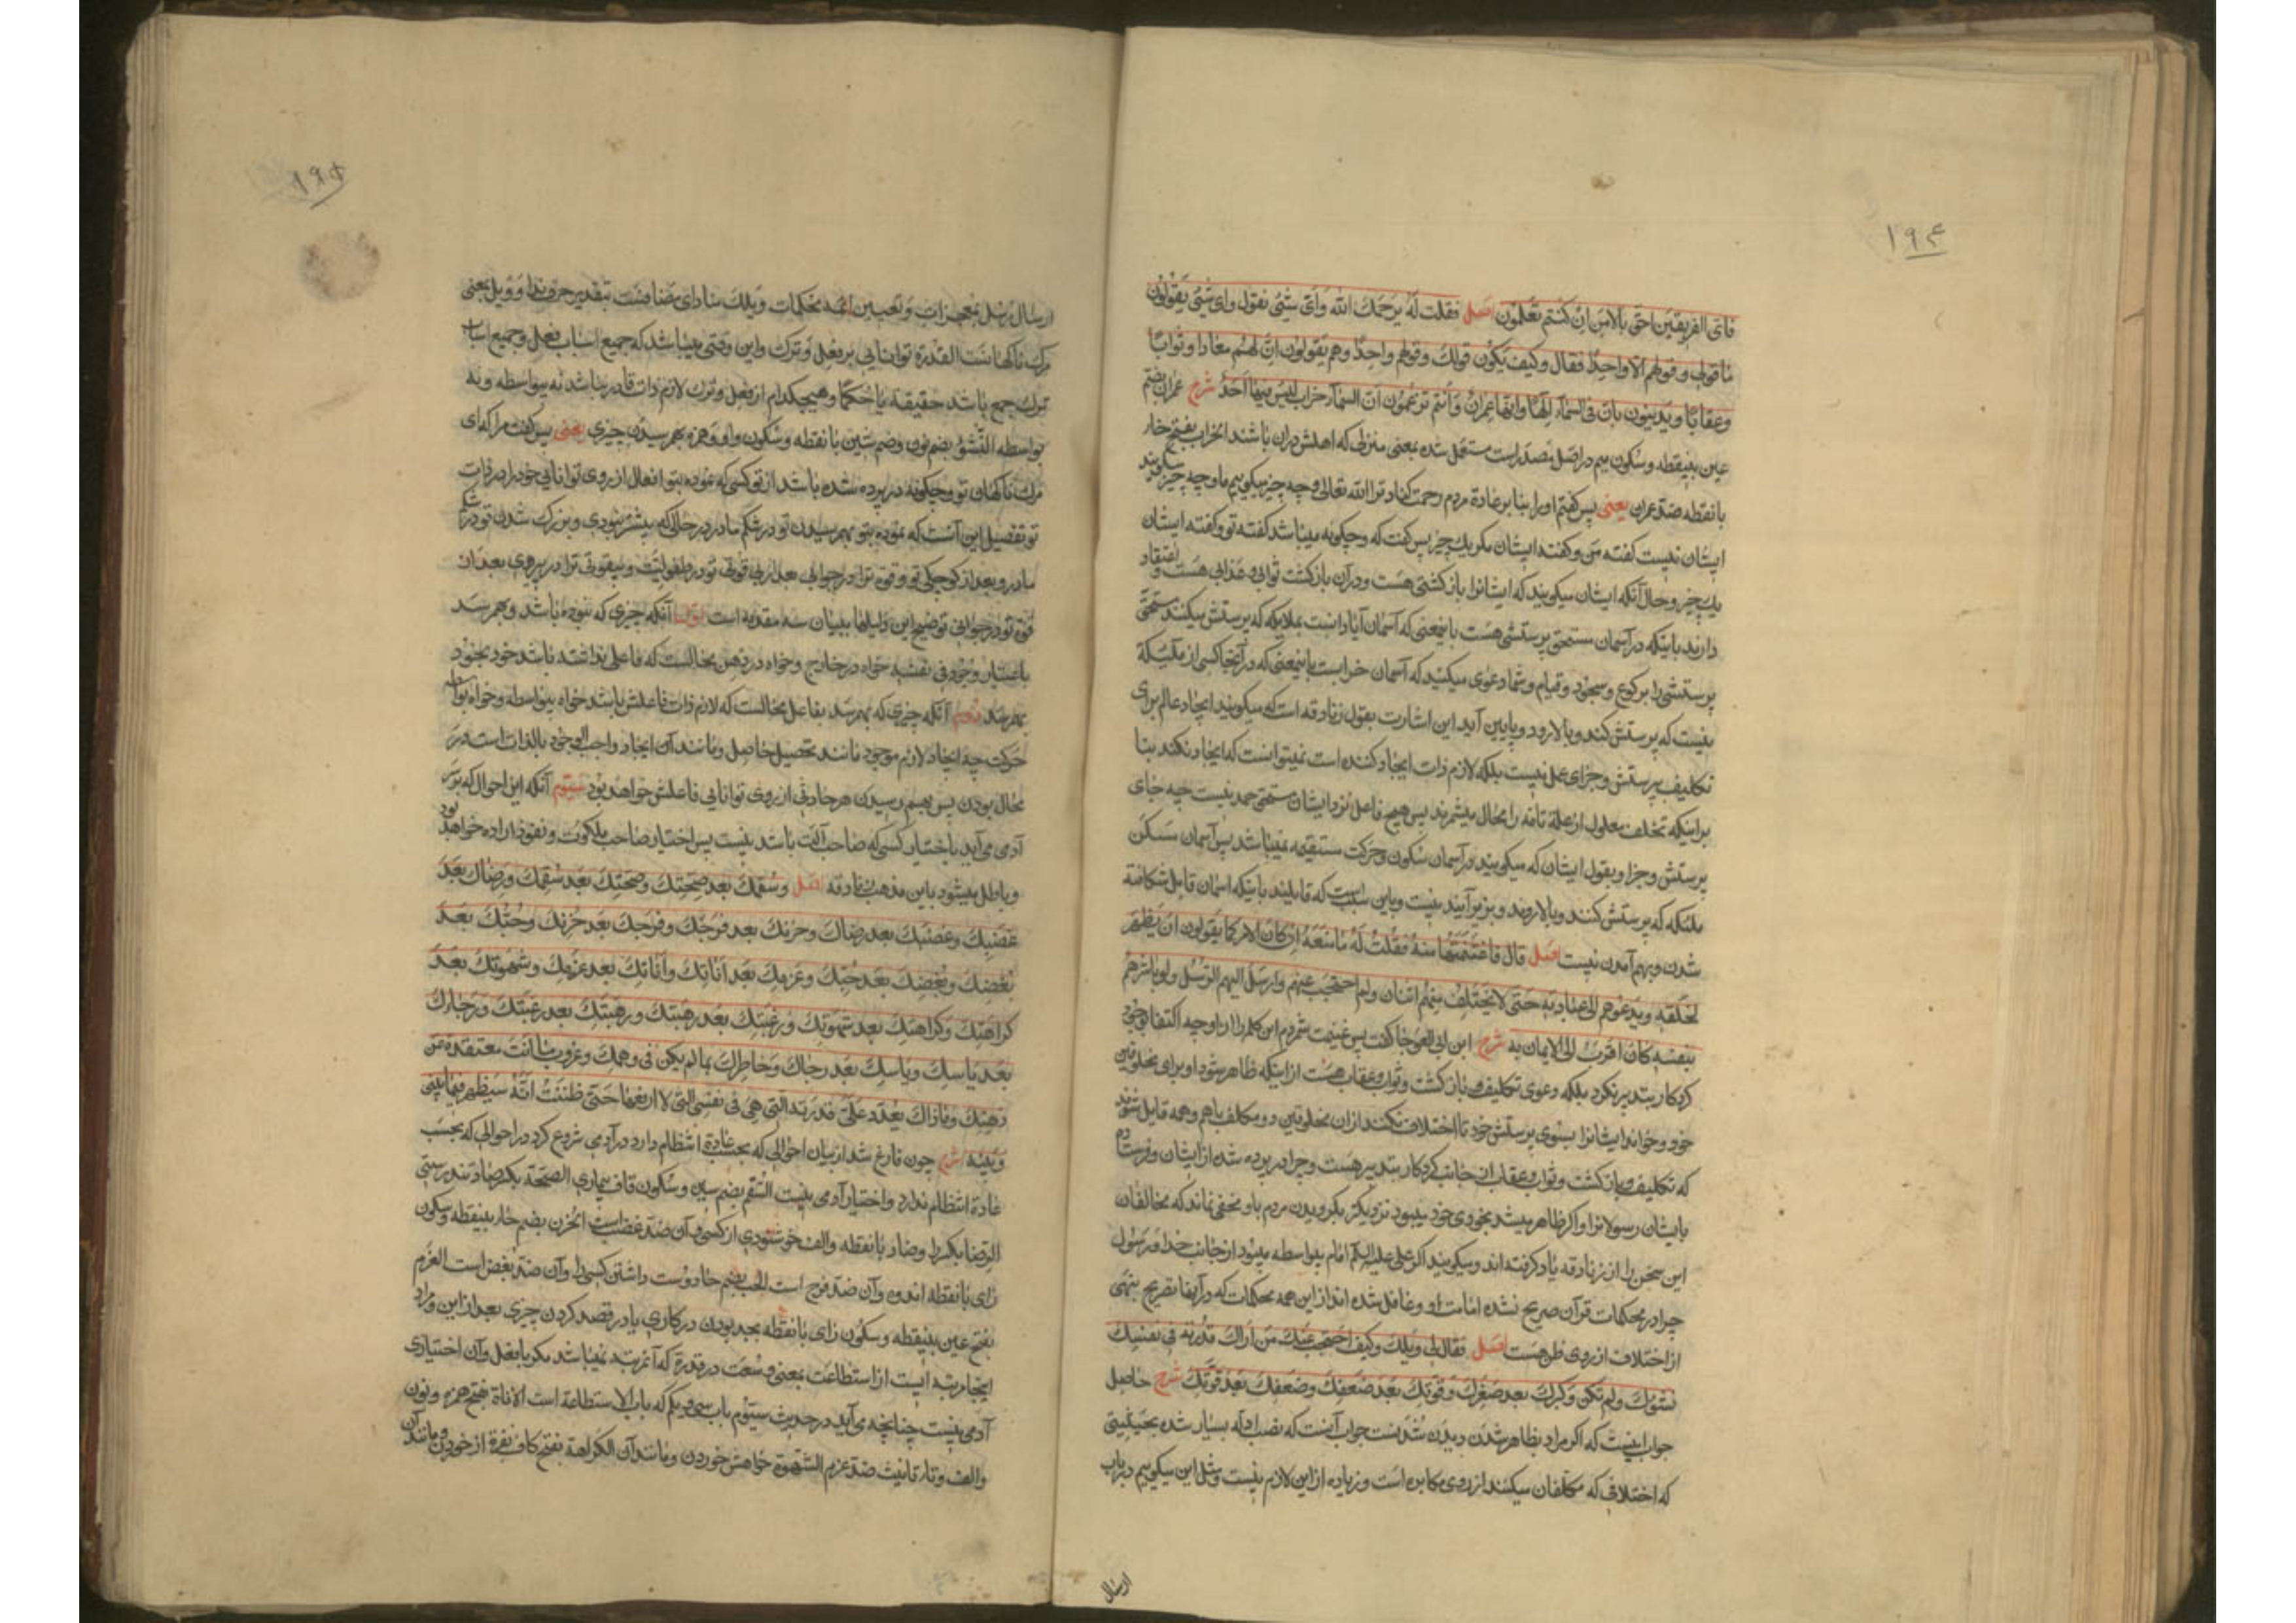 ۱۹۴
فای الفریقین احق بالامن ان کنتم تعلمون اصل فقلت له یرحمک الله وای شیء نقول وای شیء یقولون
ما قولی وقولهم الا واحدا فقال وکیف یکون قولک وقولهم واحدا وهم یقولون ان لهم معادا وثوابا
وعقابا ویدینون بان فی السماء الها وانها عمران وانتم تزعمون ان السماء خراب لیس فیها احد شرح عمران بضم
عین بینقطه وسکون میم در اصل مصدر است مستعمل شده بمعنی منزلی که اهلش در ان باشند الخراب بفتح خاء
با نقطه ضد عمران یعنی پس گفتم او را بنا بر عادة مردم رحمت کناد ترا الله تعالی وچه چیز میگوییم ما وچه چیز میگویند
ایشان نیست گفته من وگفته ایشان مگر یک چیز پس گفت که وچگونه میباشد گفته تو وگفته ایشان
یک چیز وحال آنکه ایشان میگویند که ایشانرا بازگشتی هست ودر آن بازگشت ثوابی وعذابی هست واعتقاد
دارند باینکه در آسمان مستحق پرستشی هست باینمعنی که آسمان آبادانست بملایکه که پرستش میکنند مستحق
پرستشی را برکوع وسجود وقیام وشما دعوی میکنید که آسمان خرابست باینمعنی که در آنجا کسی از ملئکة
نیست که پرستش کند وبالا رود وپایین آید این اشارت بقول زنادقه است که میگویند ایجاد عالم برای
تکلیف پرستش وجزای عمل نیست بلکه لازم ذات ایجاد کننده است نمیتوانست که ایجاد نکند بنا
براینکه تخلف معلول از علة تامه را محال میشمرند پس هیچ فاعل نزد ایشان مستحق حمد نیست چه جای
پرستش وجزا وبقول ایشان که میگویند در آسمان سکون وحرکت مستقیمه نمیباشد پس آسمان مسکن
ملئکه که پرستش کنند وبالا روند وبزیر آیند نیست وباین سبب است که قایلند باینکه اسمان قابل شکافته
شدن وبهم آمدن نیست اصل قال فاغتنمتها منه فقلت له ما منعه ان کان الامر کما یقولون ان یظهر
لخلقه ویدعوهم الی عبادته حتی لا یختلف منهم اثنان ولم احتجب عنهم وارسل الیهم الرسل ولو باشرهم
بنفسه کان اقرب الی الایمان به شرح ابن ابی العوجا گفت پس غنیمت شمردم این کلمه را از او چه اکتفا بوجود
کردکار بتدبیر نکرد بلکه دعوی تکلیف وبازگشت وثواب وعقاب هست از اینکه ظاهر شود او برای مخلوقین
خود وخواند ایشانرا بسوی پرستش خود تا اختلاف نکنند از ان مخلوقین دو مکلف باهم وهمه قایل شوند
که تکلیف وبازگشت وثواب وعقاب از جانب کردکار بتدبیر هست وچرا در پرده شده از ایشان وفرستاده
بایشان رسولانرا واگر ظاهر میشد بخودی خود میبود نزدیکتر بگرویدن مردم باو مخفی نماند که مخالفان
این سخن را از زنادقه یاد گرفته اند ومیگویند اگر علی علیه السلام امام بیواسطه میبود از جانب خدا ورسول
چرا در محکمات قرآن صریح نشده امامت او وغافل شده اند از این همه محکمات که در آنها تصریح بنهی
از اختلاف از روی ظن هست اصل فقال لی ویلک وکیف احتجب عنک من اراک قدرته فی نفسک
نشوئک ولم تکن وکبرک بعد صغرک وقوتک بعد ضعفک وضعفک بعد قوتک شرح حاصل
جواب اینست که اگر مراد بظاهر شدن دیدن شدنست جواب آنست که نصب ادله بسیار شده بحیثیتی
که اختلاف که مکلفان میکنند از روی مکابره است وزیاده از این لازم نیست ومثل این میگوییم در باب
ارسال
۱۹۵
ارسال رسل بمعجزات وتعیین ائمه بمحکمات ویلک منادای مضافست بتقدیر حرف ندا وویل بمعنی
مرک ناکهانست القدرة توانایی بر فعل وترک واین وقتی میباشد که جمیع اسباب فعل وجمیع اسباب
ترک جمع باشد حقیقة یا حکما وهیچکدام از فعل وترک لازم ذات قادر نباشد نه بیواسطه ونه
بواسطه النشوء بضم نون وضم شین با نقطه وسکون واو وهمزه بهم رسیدن چیزی یعنی پس گفت مرا که ای
مرک ناکهان تو وچگونه در پرده شده باشد از تو کسی که نموده بتو افعال از روی توانایی خود را در ذات
تو تفصیل این آنست که نموده بتو بهم رسیدن تو در شکم مادر در حالی که پیشتر نبودی وبزرک شدن تو در شکم
مادر وبعد از کوچکی تو وقوة ترا در جوانی بعد از بی قوتی تو در طفولیت وبیقوتی ترا در پیری بعد از ان
قوة تو در جوانی توضیح این دلیلها ببیان سه مقدمه است اول آنکه چیزی که نبوده باشد وبهم رسد
باعتبار وجود فی نفسه خواه در خارج وخواه در ذهن محالست که فاعلی نداشته باشد خود بخود
بهم رسد دوم آنکه چیزی که بهم رسد بفاعل محالست که لازم ذات فاعلش باشد خواه بیواسطه وخواه بواسطه
حرکت چه ایجاد لازم موجود مانند تحصیل حاصل ومانند آن ایجاد واجب الوجود بالذات است در
محال بودن پس بهم رسیدن هر حادثی از روی توانایی فاعلش خواهد بود سیوم آنکه این احوال که بر
آدمی می آید باختیار کسی که صاحب آلت باشد نیست پس اختیار صاحب ملکوت ونفوذ اراده خواهد بود
وباطل میشود باین مذهب زنادقه اصل وسقمک بعد صحتک وصحتک بعد سقمک ورضاک بعد
غضبک وغضبک بعد رضاک وحزنک بعد فرحک وفرحک بعد حزنک وحبک بعد
بغضک وبغضک بعد حبک وعزمک بعد اناتک واناتک بعد عزمک وشهوتک بعد
کراهتک وکراهتک بعد شهوتک ورغبتک بعد رهبتک ورهبتک بعد رغبتک ورجاءک
بعد یاسک ویاسک بعد رجائک وخاطرک بما لم یکن فی وهمک وعزوب ما انت معتقده عن
ذهنک ومازال یعدد علی قدرته التی هی فی نفسی التی لا ادفعها حتی ظننت انه سیظهر فیما بینی
وبینه شرح چون فارغ شد از بیان احوالی که بحسب عادة انتظام دارد در آدمی شروع کرد در احوالی که بحسب
عادة انتظام ندارد واختیار آدمی نیست السقم بضم سین وسکون قاف بیماری الصحة بکسر صاد تندرستی
الرضا بکسر را وضاد با نقطه والف خوشنودی از کسی وآن ضد غضب است الحزن بضم حاء بینقطه وسکون
زای با نقطه اندوه وآن ضد فرح است الحب بضم حا دوست داشتن کسی را وآن ضد بغض است العزم
بفتح عین بینقطه وسکون زای با نقطه بجد بودن در کاری یا در قصد کردن چیزی بعد از این ومراد
اینجا رتبه ایست از استطاعت بمعنی وسعت در قدرة که آنمرتبه نمیباشد مگر با فعل وآن اختیاری
آدمی نیست چنانچه می آید در حدیث سیوم باب سی ویکم که باب الاستطاعة است الاناة بفتح همزه ونون
والف وتاء تانیث ضد عزم الشهوة خواهش خوردن ومانند آن الکراهة بفتح کاف نفرة از خوردن ومانند آن